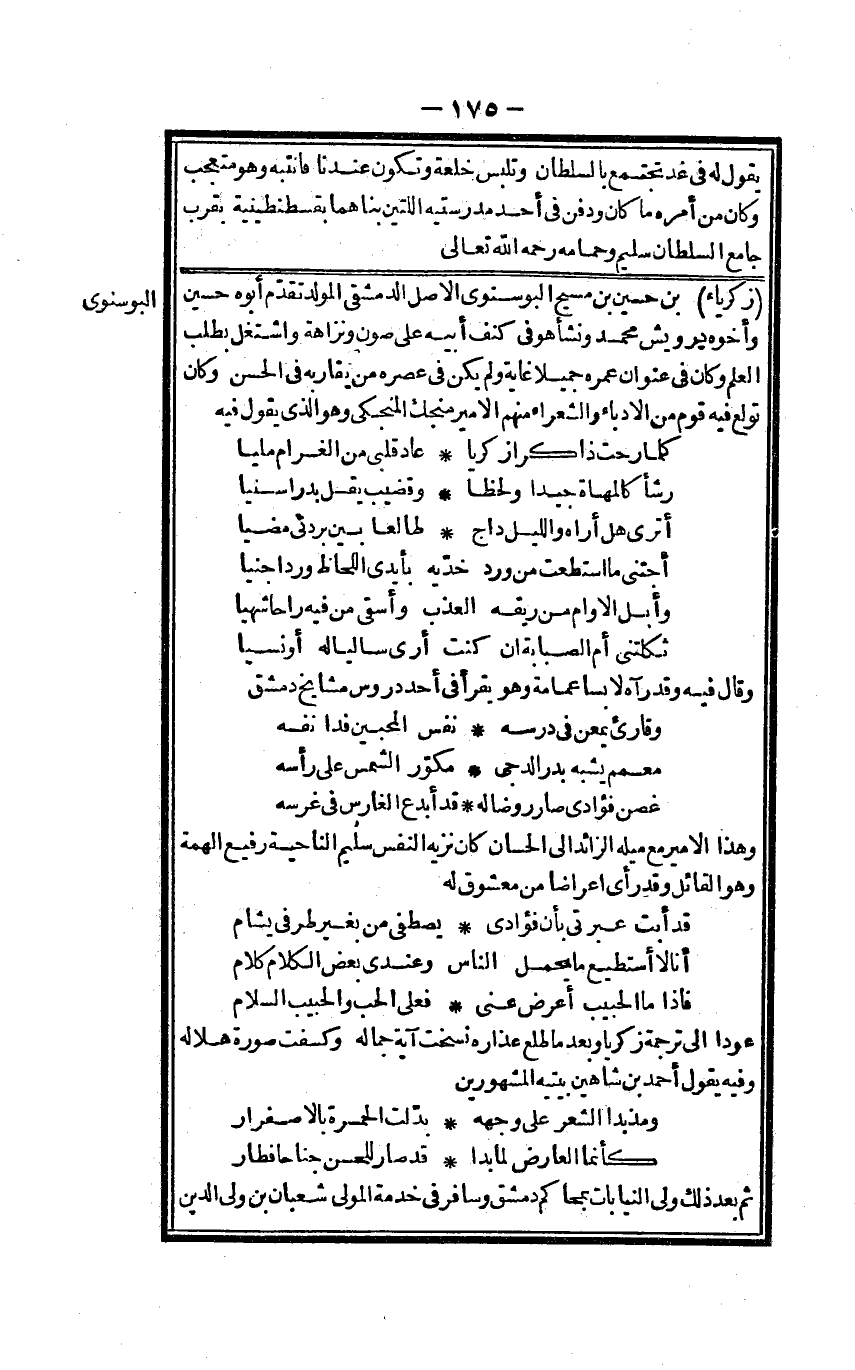 — ١٧٥ —
يقول له فى غد تجتمع بالسلطان وتلبس خلعة وتكون عندنا فانتبه وهو متعجب
وكان من أمره ما كان ودفن فى أحد مدرستيه اللتين بناهما بقسطنطينية بقرب
جامع السلطان سليم وحمامه رحمه الله تعالى
(زكرياء) بن حسين بن مسيح البوسنوى الاصل الدمشقى المولد تقدّم أبوه حسين
البوسنوى
وأخوه درويش محمد ونشأ هو فى كنف أبيه على صون ونزاهة واشتغل بطلب
العلم وكان فى عنوان عمره جميلا غاية ولم يكن فى عصره من يقاربه فى الحسن وكان
تولع فيه قوم من الادباء والشعراء منهم الامير منجك المنجكى وهو الذى يقول فيه
كلما رحت ذاكرا زكريا * عاد قلبى من الغرام مليا
رشأ كالمهاة جيدا ولحظا * وقضيب يقل بدرا سنيا
أترى هل أراه والليل داج * طالعا بين بردتى مضيا
أجتنى ما استطعت من ورد خدّيه بأيدى اللحاظ وردا جنيا
وأبل الاوام من ريقه العذب وأسقى من فيه راحا شهيا
ثكلتنى أم الصبابة ان كنت أرى ساليا له أونسيا
وقال فيه وقد رآه لابسا عمامة وهو يقرأ فى أحد دروس مشايخ دمشق
وقارئ يمعن فى درسه * نفس المحبين فدا نفسه
معمم يشبه بدر الدجى * مكوّر الشمس على رأسه
غصن فؤادى صار روضا له * قد أبدع الغارس فى غرسه
وهذا الامير مع ميله الزائد الى الحسان كان نزيه النفس سليم الناحية رفيع الهمة
وهو القائل وقد رأى اعراضا من معشوق له
قد أبت عبرتى بأن فؤادى * يصطفى من بغير طرفى يشام
أنا لا أستطيع ما يحمل الناس وعندى بعض الكلام كلام
فاذا ما الحبيب أعرض عنى * فعلى الحب والحبيب السلام
عودا الى ترجمة زكريا وبعد ما طلع عذاره نسخت آية جماله وكسفت صورة هلاله
وفيه يقول أحمد بن شاهين بيتيه المشهورين
ومذ بدا الشعر على وجهه * بدّلت الحمرة بالاصفرار
كأنما العارض لما بدا * قد صار للحسن جناحا فطار
ثم بعد ذلك ولى النيابات بمحاكم دمشق وسافر فى خدمة المولى شعبان بن ولى الدين